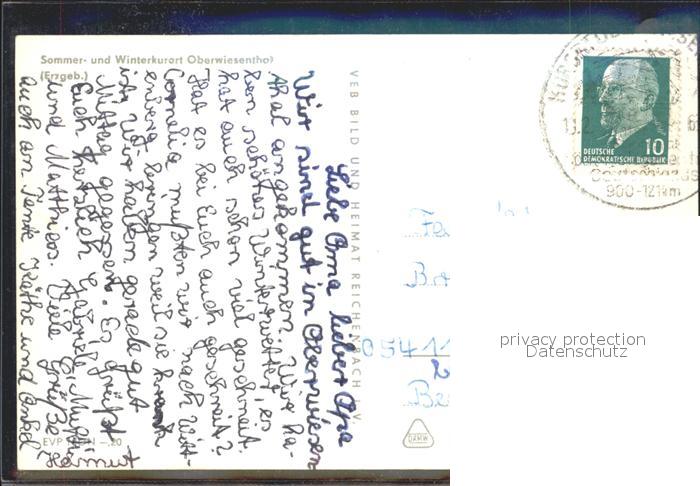 Sommer- und Winterkurort Oberwiesenthal
(Erzgeb.)
Liebe Oma lieber Opa
Wir sind gut in Oberwiesen
thal angekommen. Wir ha-
ben schönes Winterwetter, es
hat auch schon viel geschneit.
Hat es bei Euch auch geschneit?
Cornelia mußten wir nach Witt-
enberg bringen weil sie krank
ist. Wir haben gerade gut
Mittag gegessen. Es grüßt
Euch herzlich Gabriele, Mutti
und Matthias. Viele Grüße
auch an Tante Käthe und Onkel
Helmut
VEB BILD UND HEIMAT REICHENBACH I. V.
EVP MDN -.20
DAMW
DEUTSCHE
DEMOKRATISCHE REPUBLIK
10
Deutschlands
900-1214m
0541
2
privacy protection
Datenschutz